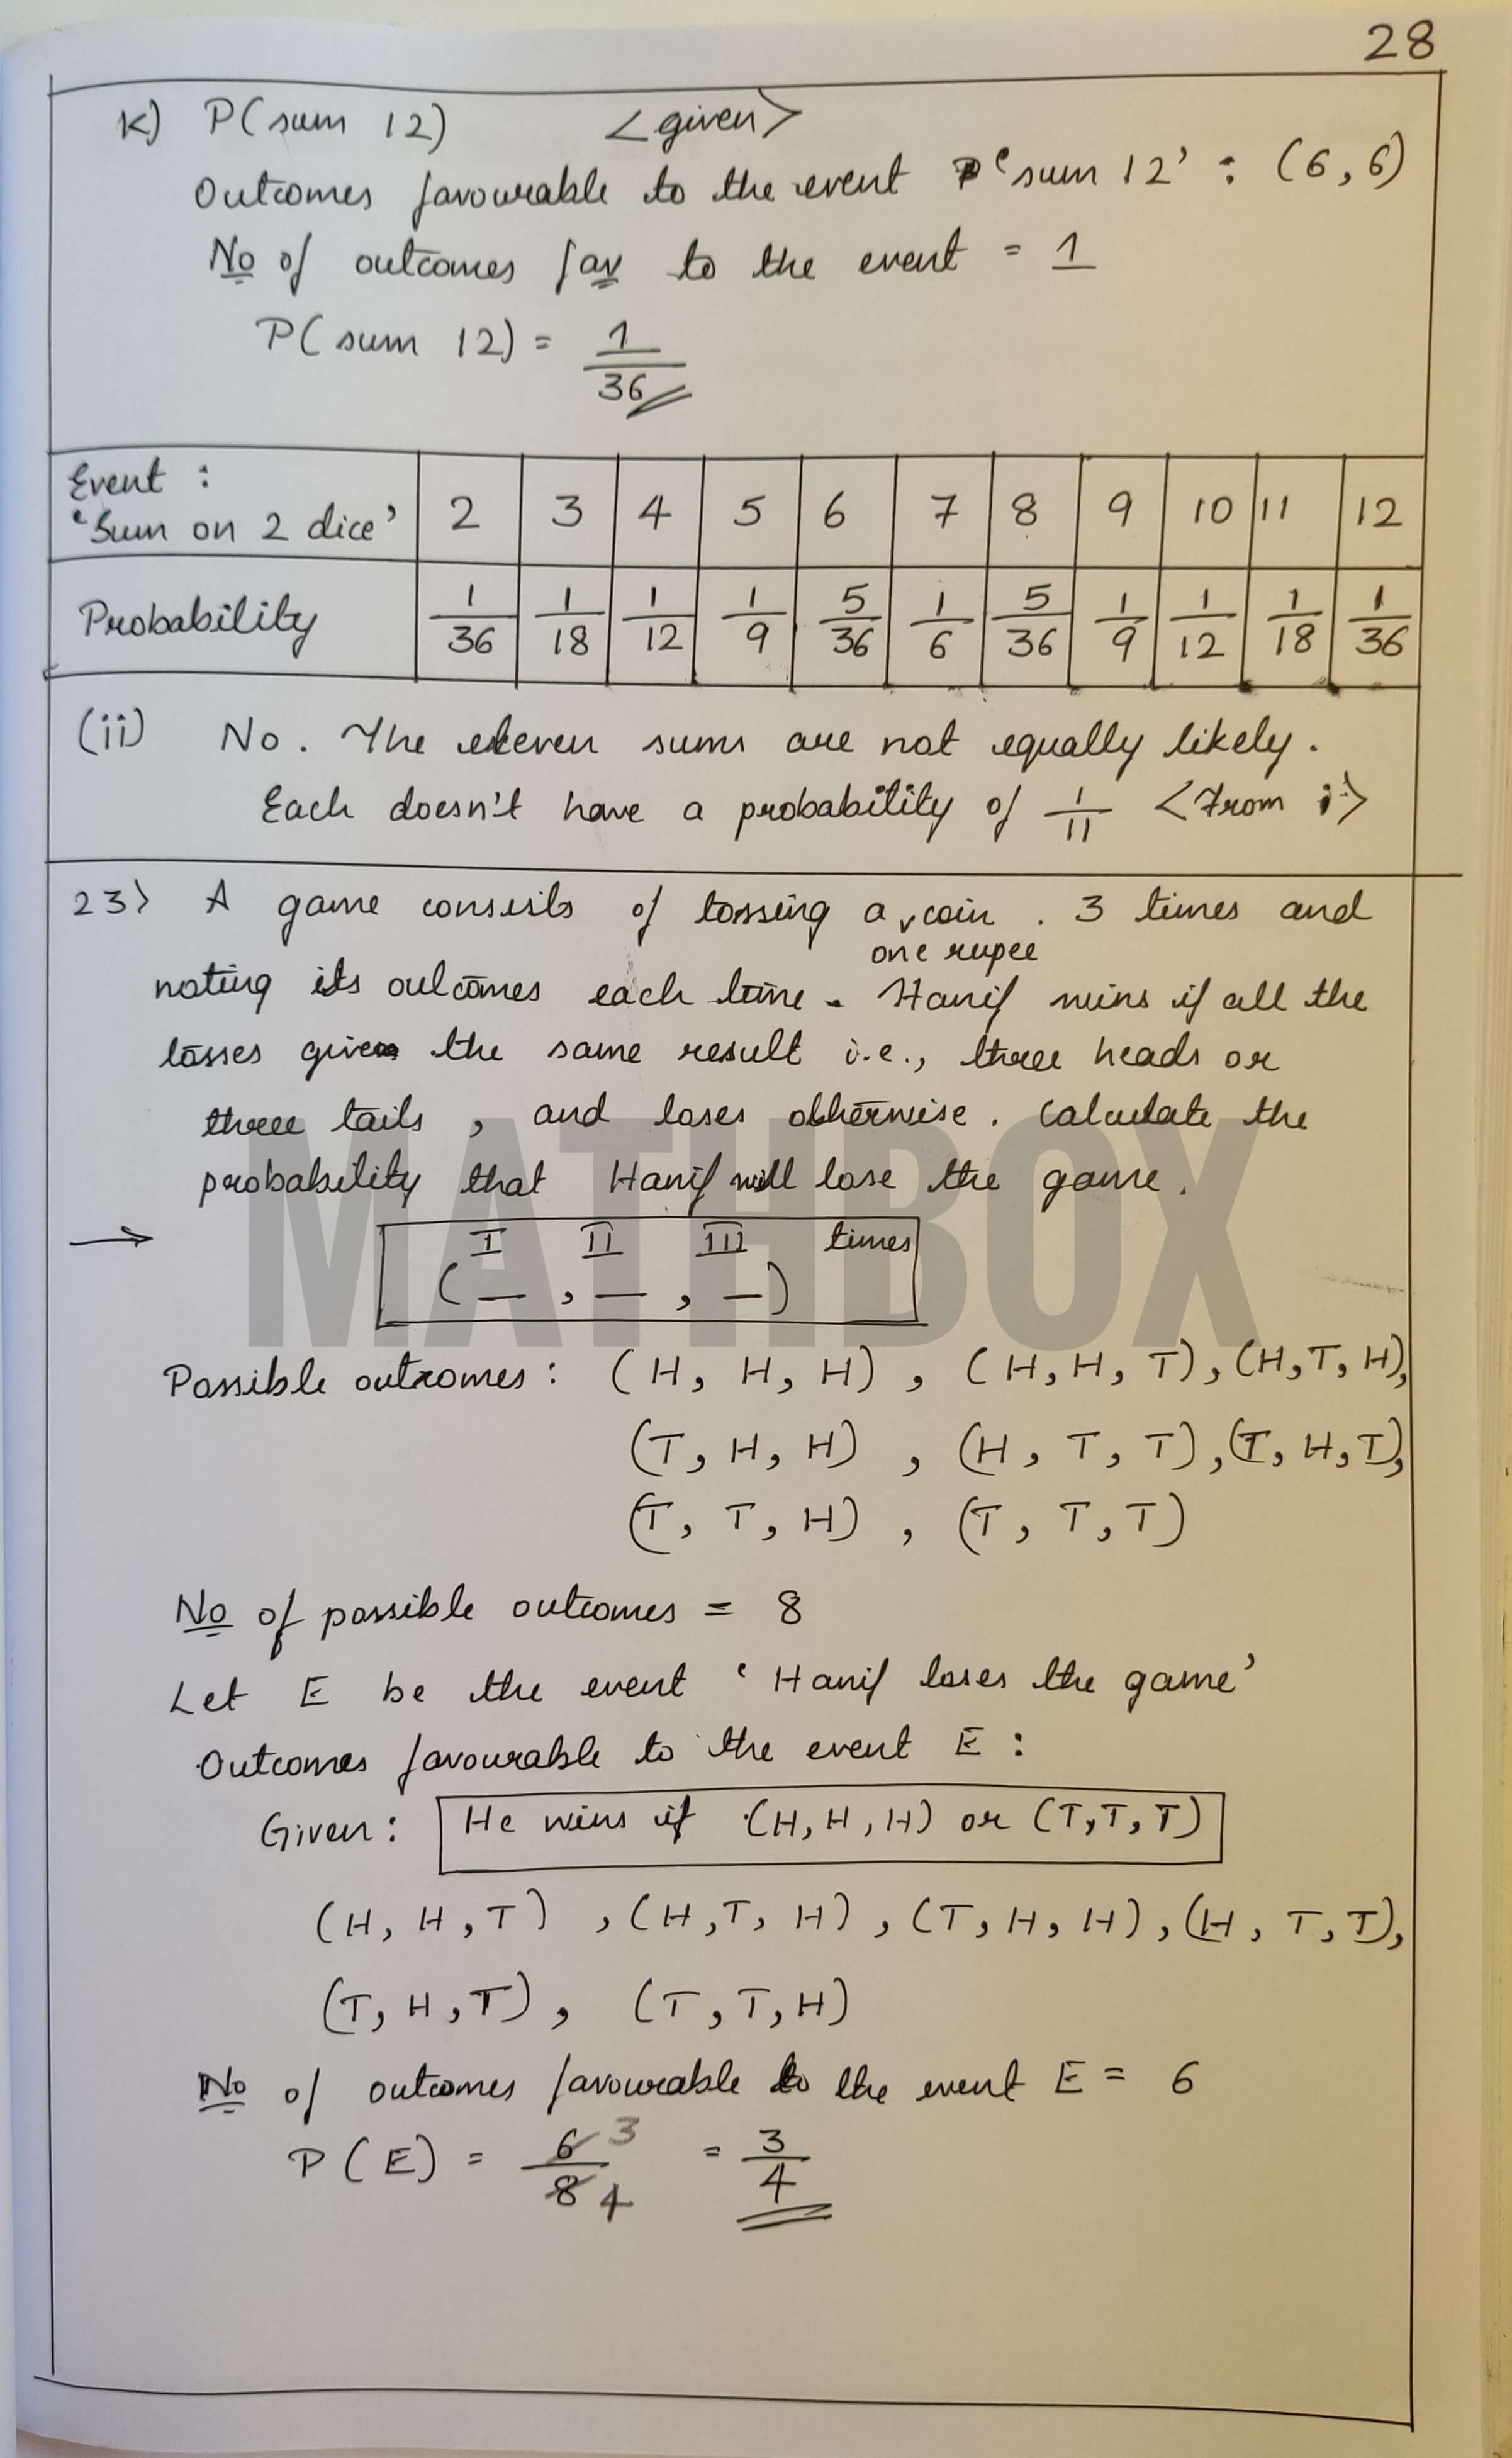 28
K) P(sum 12) <given>
Outcomes favourable to the event 'sum 12' : (6, 6)
No of outcomes fav to the event = 1
P(sum 12) = 1/36
Event : 'Sum on 2 dice' 2 3 4 5 6 7 8 9 10 11 12
Probability 1/36 1/18 1/12 1/9 5/36 1/6 5/36 1/9 1/12 1/18 1/36
(ii) No. The eleven sums are not equally likely.
Each doesn't have a probability of 1/11 <From i>
23> A game consists of tossing a one rupee coin . 3 times and
noting its outcomes each time. Hanif wins if all the
tosses give the same result i.e., three heads or
three tails , and loses otherwise. Calculate the
probability that Hanif will lose the game.
→ I II III times
( _ , _ , _ )
MATHBOX
Possible outcomes : (H, H, H) , (H, H, T), (H, T, H),
(T, H, H) , (H, T, T), (T, H, T),
(T, T, H) , (T, T, T)
No of possible outcomes = 8
Let E be the event 'Hanif loses the game'
Outcomes favourable to the event E :
Given : He wins if (H, H, H) or (T, T, T)
(H, H, T) , (H, T, H) , (T, H, H) , (H, T, T),
(T, H, T) , (T, T, H)
No of outcomes favourable to the event E = 6
P(E) = 6/8 3 4 = 3/4